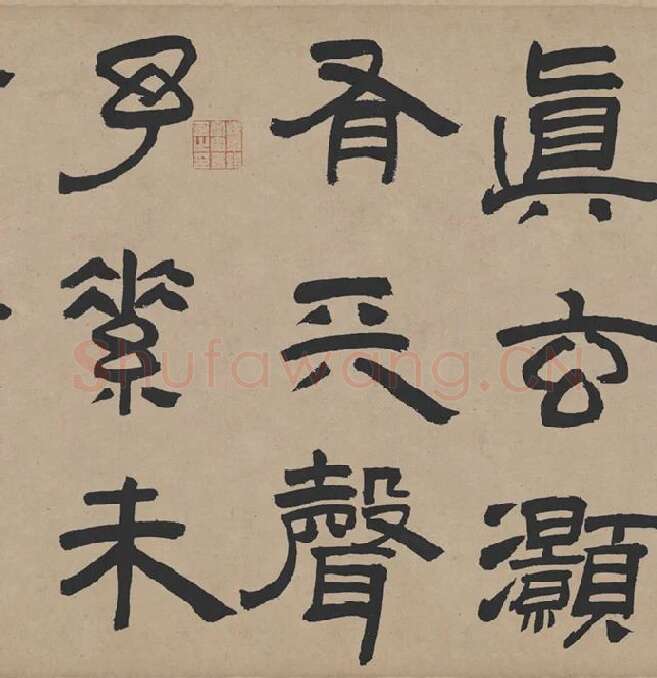 眞玄灝
有聲
子素未
Shufawang.CN